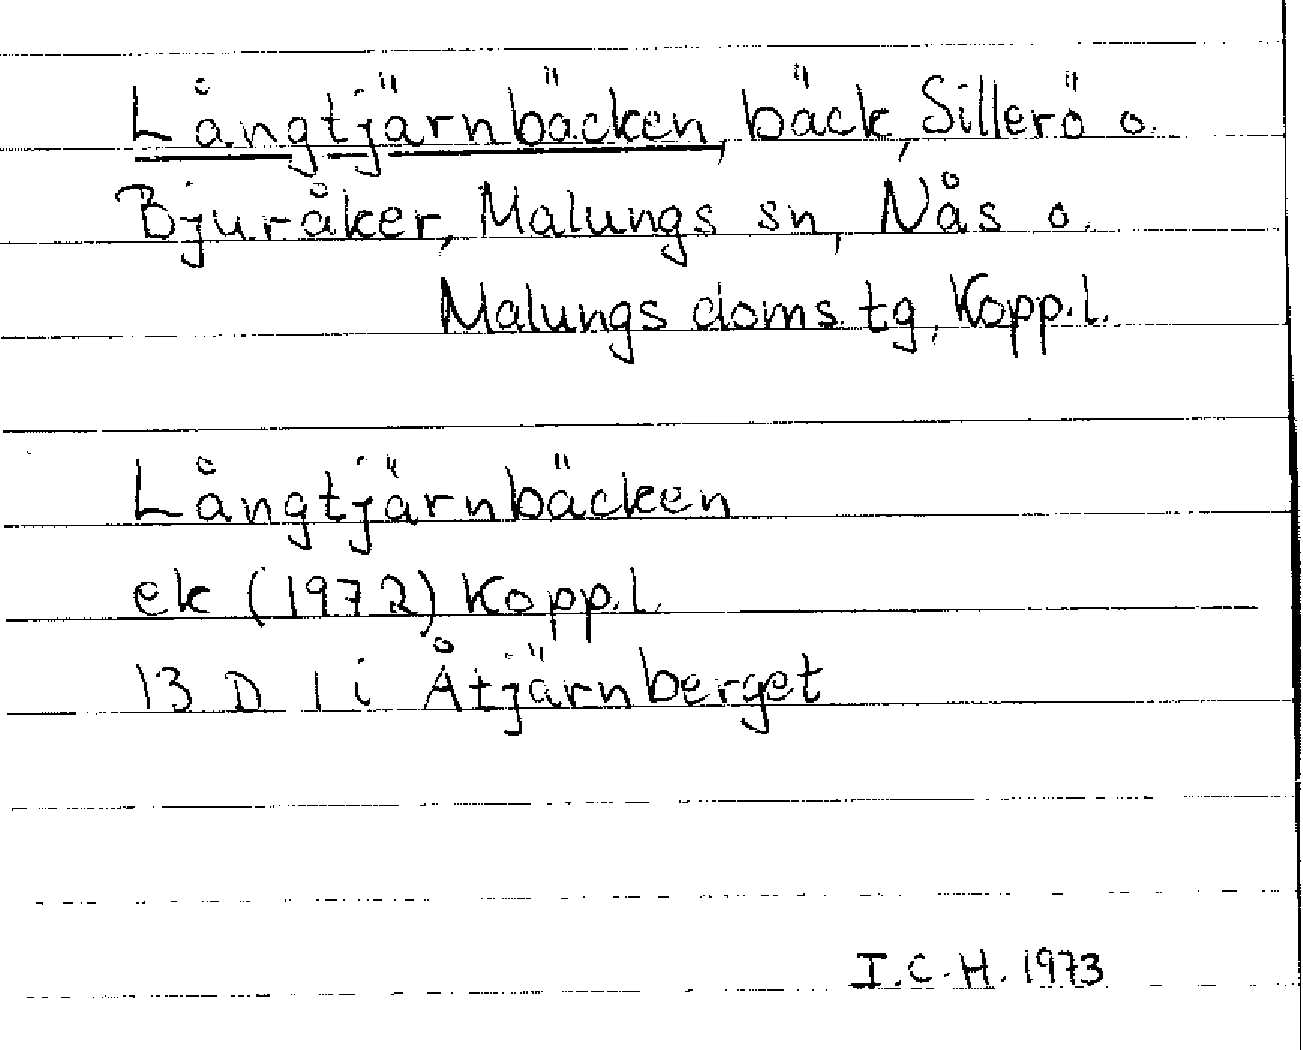 Långtjärnbäcken, bäck, Sillerö o.
Bjuråker, Malungs sn, Nås o.
Malungs doms. tg, Kopp.l.
Långtjärnbäcken
ek (1972) Kopp.l.
13 D 1 i Åtjärnberget
I.C.H. 1973